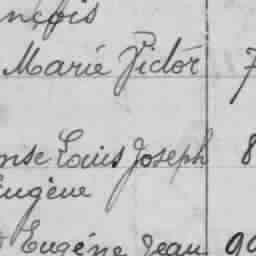 nçois
Marie Victor 7
onse Louis Joseph 8
Eugène
Eugène Jean 90